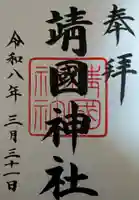 奉拝
靖國神社
令和八年三月三十一日